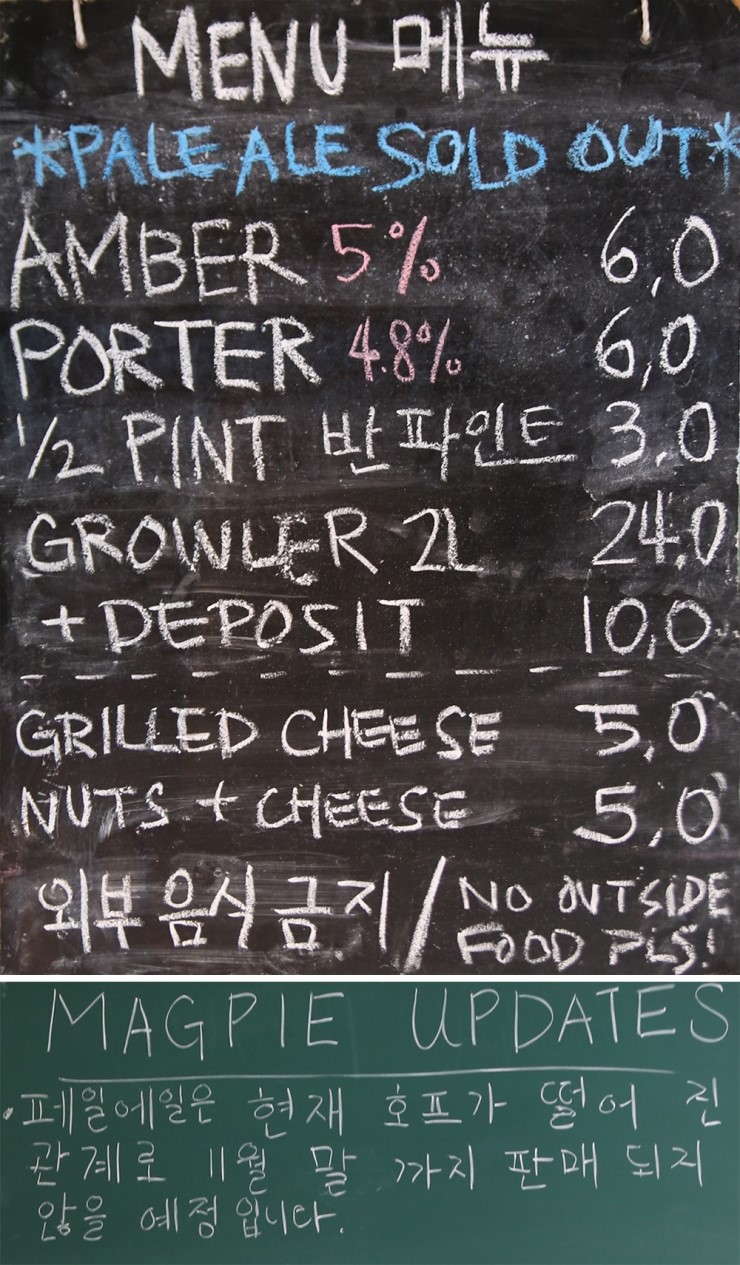 MENU 메뉴
*PALE ALE SOLD OUT*
AMBER 5% 6,0
PORTER 4.8% 6,0
1/2 PINT 반 파인트 3,0
GROWLER 2L 24,0
+ DEPOSIT 10,0
GRILLED CHEESE 5,0
NUTS + CHEESE 5,0
외부 음식 금지 / NO OUTSIDE
FOOD PLS!
MAGPIE UPDATES
·페일에일은 현재 호프가 떨어 진
관계로 11월 말 까지 판매 되지
않을 예정 입니다.